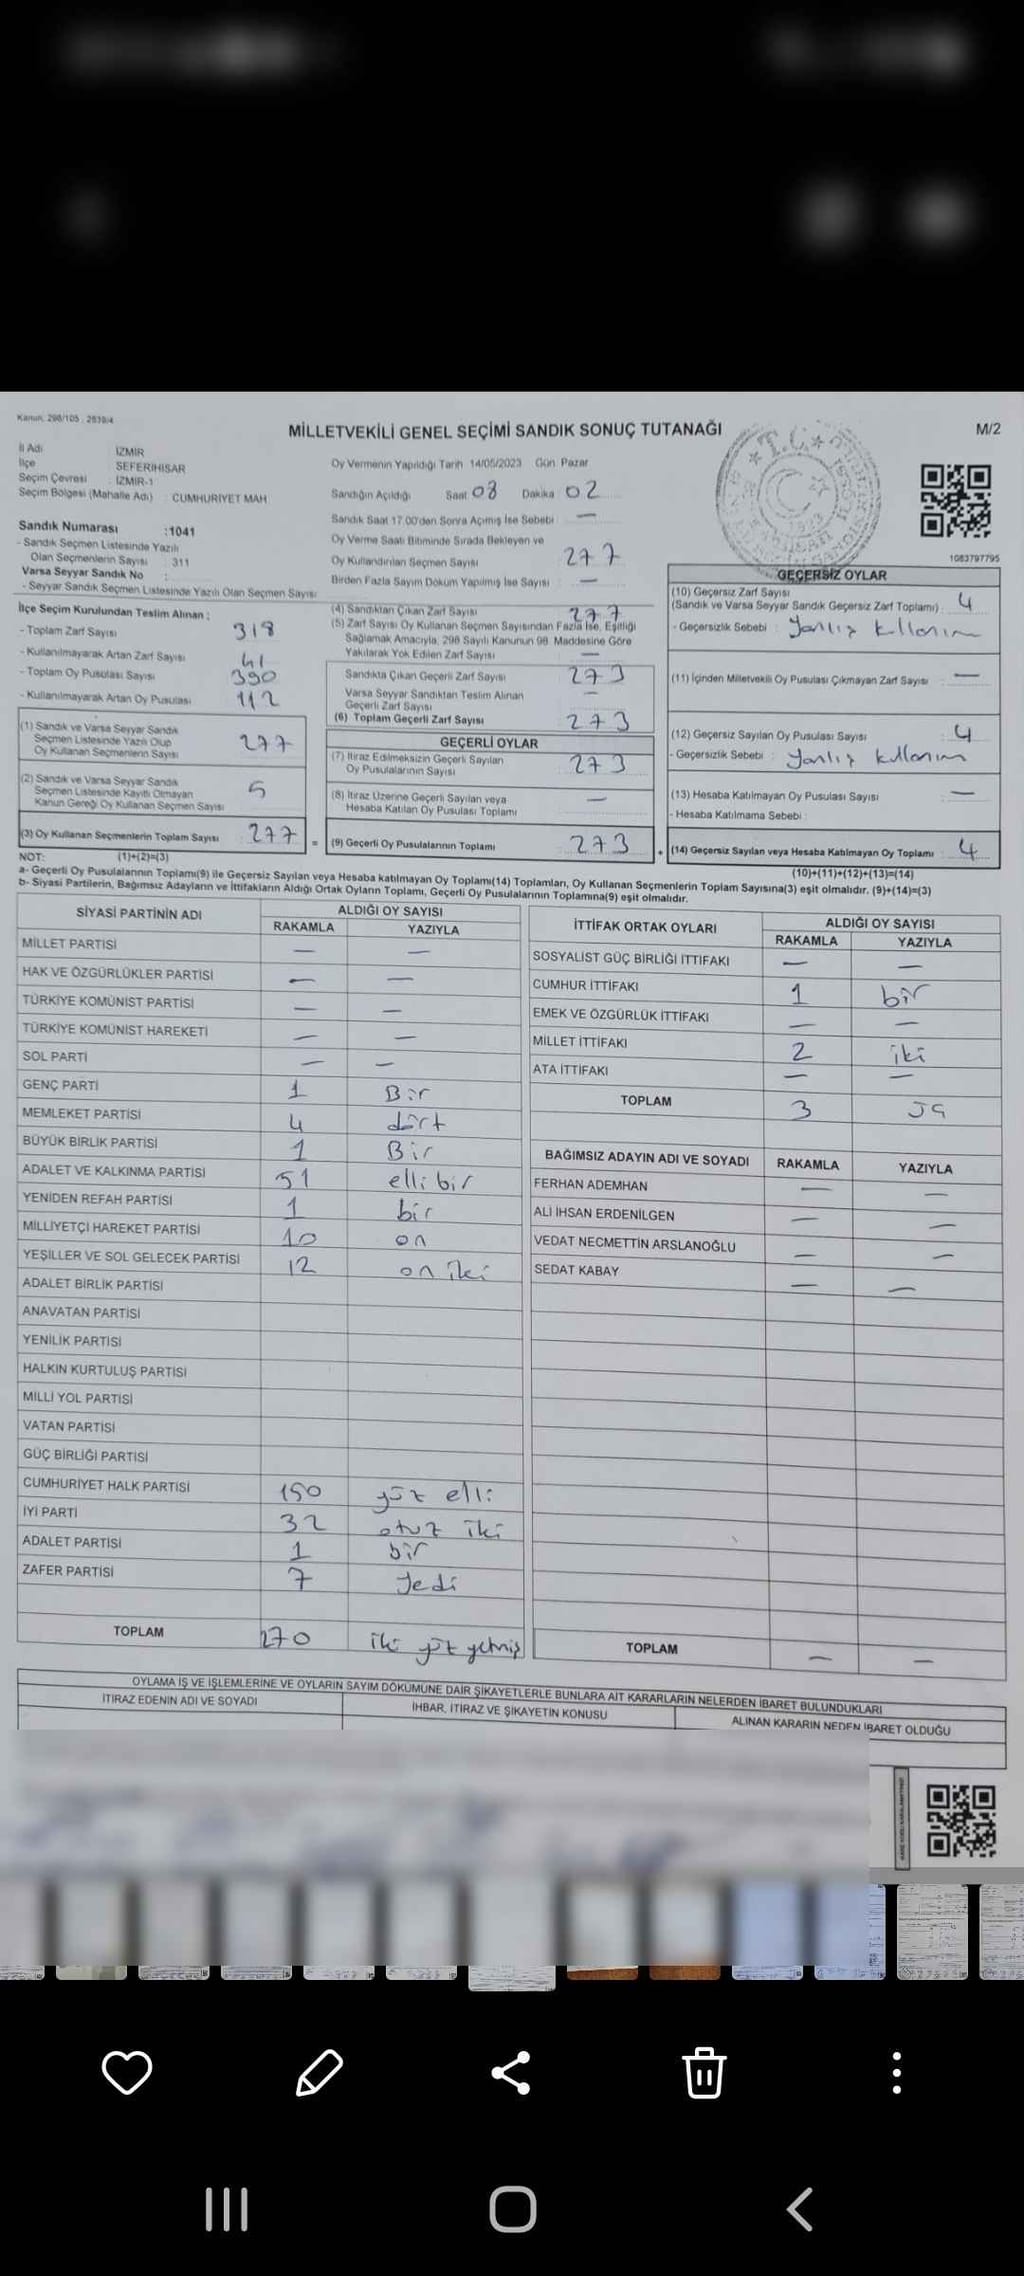 Kanun, 298/105 , 2839/4
MİLLETVEKİLİ GENEL SEÇİMİ SANDIK SONUÇ TUTANAĞI
M/2
İl Adı İZMİR
İlçe SEFERİHİSAR
Seçim Çevresi : İZMİR-1
Seçim Bölgesi (Mahalle Adı) : CUMHURİYET MAH
Sandık Numarası :1041
- Sandık Seçmen Listesinde Yazılı
Olan Seçmenlerin Sayısı : 311
Varsa Seyyar Sandık No :
- Seyyar Sandık Seçmen Listesinde Yazılı Olan Seçmen Sayısı
Oy Vermenin Yapıldığı Tarih 14/05/2023 Gün Pazar
Sandığın Açıldığı Saat 08 Dakika 02
Sandık Saat 17.00'den Sonra Açımış İse Sebebi —
Oy Verme Saati Bitiminde Sırada Bekleyen ve
Oy Kullandırılan Seçmen Sayısı 277
Birden Fazla Sayım Döküm Yapılmış İse Sayısı —
T.C.
1083797795
İlçe Seçim Kurulundan Teslim Alınan ;
- Toplam Zarf Sayısı 318
- Kullanılmayarak Artan Zarf Sayısı 41
- Toplam Oy Pusulası Sayısı 390
- Kullanılmayarak Artan Oy Pusulası 112
(1) Sandık ve Varsa Seyyar Sandık
Seçmen Listesinde Yazılı Olup
Oy Kullanan Seçmenlerin Sayısı 277
(2) Sandık ve Varsa Seyyar Sandık
Seçmen Listesinde Kayıtlı Olmayan
Kanun Gereği Oy Kullanan Seçmen Sayısı 5
(3) Oy Kullanan Seçmenlerin Toplam Sayısı 277 =
(1)+(2)=(3)
(4) Sandıktan Çıkan Zarf Sayısı 277
(5) Zarf Sayısı Oy Kullanan Seçmen Sayısından Fazla İse, Eşitliği
Sağlamak Amacıyla, 298 Sayılı Kanunun 98. Maddesine Göre
Yakılarak Yok Edilen Zarf Sayısı —
Sandıkta Çıkan Geçerli Zarf Sayısı 273
Varsa Seyyar Sandıktan Teslim Alınan
Geçerli Zarf Sayısı —
(6) Toplam Geçerli Zarf Sayısı 273
GEÇERLİ OYLAR
(7) İtiraz Edilmeksizin Geçerli Sayılan
Oy Pusulalarının Sayısı 273
(8) İtiraz Üzerine Geçerli Sayılan veya
Hesaba Katılan Oy Pusulası Toplamı —
(9) Geçerli Oy Pusulalarının Toplamı 273 +
GEÇERSİZ OYLAR
(10) Geçersiz Zarf Sayısı
(Sandık ve Varsa Seyyar Sandık Geçersiz Zarf Toplamı) 4
- Geçersizlik Sebebi : Yanlış kullanım
(11) İçinden Milletvekili Oy Pusulası Çıkmayan Zarf Sayısı —
(12) Geçersiz Sayılan Oy Pusulası Sayısı : 4
- Geçersizlik Sebebi : Yanlış kullanım
(13) Hesaba Katılmayan Oy Pusulası Sayısı —
- Hesaba Katılmama Sebebi
(14) Geçersiz Sayılan veya Hesaba Katılmayan Oy Toplamı 4
(10)+(11)+(12)+(13)=(14)
NOT:
a- Geçerli Oy Pusulalarının Toplamı(9) ile Geçersiz Sayılan veya Hesaba katılmayan Oy Toplamı(14) Toplamları, Oy Kullanan Seçmenlerin Toplam Sayısına(3) eşit olmalıdır. (9)+(14)=(3)
b- Siyasi Partilerin, Bağımsız Adayların ve İttifakların Aldığı Ortak Oyların Toplamı, Geçerli Oy Pusulalarının Toplamına(9) eşit olmalıdır.
SİYASİ PARTİNİN ADI ALDIĞI OY SAYISI
RAKAMLA YAZIYLA
MİLLET PARTİSİ — —
HAK VE ÖZGÜRLÜKLER PARTİSİ — —
TÜRKİYE KOMÜNİST PARTİSİ — —
TÜRKİYE KOMÜNİST HAREKETİ — —
SOL PARTİ — —
GENÇ PARTİ 1 Bir
MEMLEKET PARTİSİ 4 dört
BÜYÜK BİRLİK PARTİSİ 1 Bir
ADALET VE KALKINMA PARTİSİ 51 elli bir
YENİDEN REFAH PARTİSİ 1 bir
MİLLİYETÇİ HAREKET PARTİSİ 10 on
YEŞİLLER VE SOL GELECEK PARTİSİ 12 on iki
ADALET BİRLİK PARTİSİ
ANAVATAN PARTİSİ
YENİLİK PARTİSİ
HALKIN KURTULUŞ PARTİSİ
MİLLİ YOL PARTİSİ
VATAN PARTİSİ
GÜÇ BİRLİĞİ PARTİSİ
CUMHURİYET HALK PARTİSİ 150 yüz elli
İYİ PARTİ 32 otuz iki
ADALET PARTİSİ 1 bir
ZAFER PARTİSİ 7 Yedi
TOPLAM 270 iki yüz yetmiş
İTTİFAK ORTAK OYLARI ALDIĞI OY SAYISI
RAKAMLA YAZIYLA
SOSYALİST GÜÇ BİRLİĞİ İTTİFAKI — —
CUMHUR İTTİFAKI 1 bir
EMEK VE ÖZGÜRLÜK İTTİFAKI — —
MİLLET İTTİFAKI 2 iki
ATA İTTİFAKI — —
TOPLAM 3
BAĞIMSIZ ADAYIN ADI VE SOYADI RAKAMLA YAZIYLA
FERHAN ADEMHAN — —
ALİ İHSAN ERDENİLGEN — —
VEDAT NECMETTİN ARSLANOĞLU — —
SEDAT KABAY — —
TOPLAM — —
OYLAMA İŞ VE İŞLEMLERİNE VE OYLARIN SAYIM DÖKÜMÜNE DAİR ŞİKAYETLERLE BUNLARA AİT KARARLARIN NELERDEN İBARET BULUNDUKLARI
İTİRAZ EDENİN ADI VE SOYADI İHBAR, İTİRAZ VE ŞİKAYETİN KONUSU ALINAN KARARIN NEDEN İBARET OLDUĞU